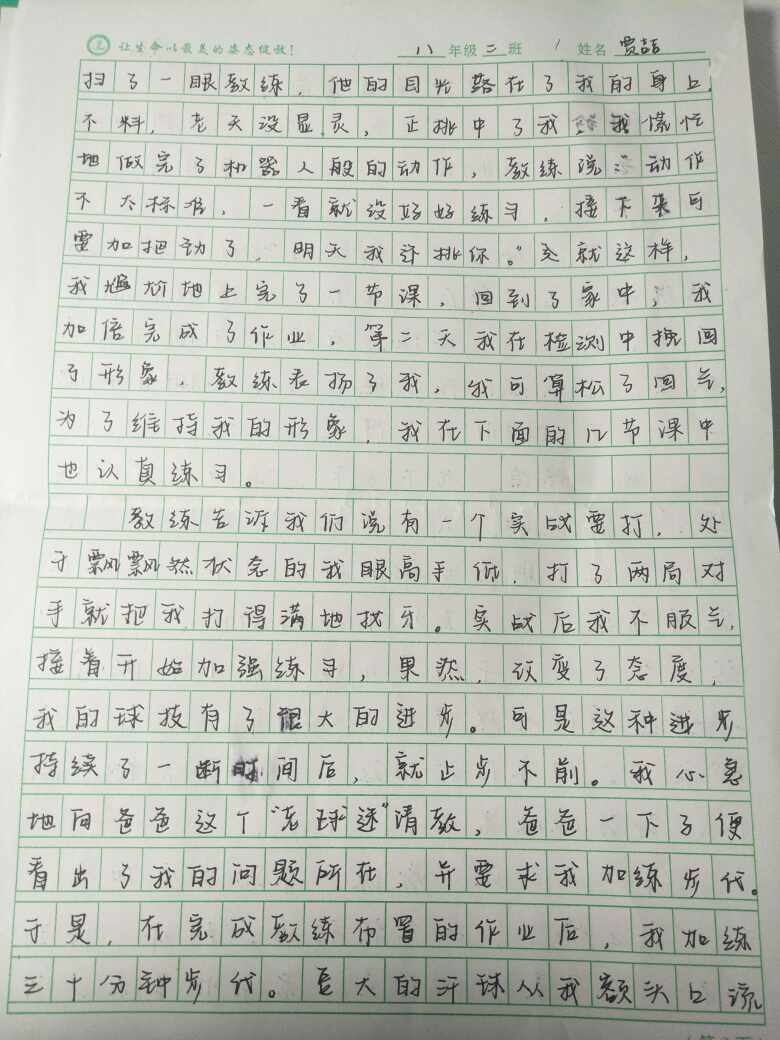 让生命以最美的姿态绽放！ 八年级二班 姓名 贾喆
扫了一眼教练，他的目光落在了我的身上，
不料，老天没显灵，正挑中了我 我慌忙
地做完了机器人般的动作，教练说：动作
不太标准，一看就没好好练习，接下来可
要加把劲了，明天我还挑你。”就这样，
我尴尬地上完了一节课，回到了家中，我
加倍完成了作业，第二天我在检测中挽回
了形象，教练表扬了我，我可算松了回气，
为了维持我的形象，我在下面的几节课中
也认真练习。
教练告诉我们说有一个实战要打，处
于飘飘然状态的我眼高手低，打了两局对
手就把我打得满地找牙。实战后我不服气，
接着开始加强练习，果然，改变了态度，
我的球技有了很大的进步。可是这种进步
持续了一断时间后，就止步不前。我心急
地向爸爸这个“老球迷”请教，爸爸一下了便
看出了我的问题所在，并要求我加练步代。
于是，在完成教练布置的作业后，我加练
三十分钟步代。豆大的汗球从我额头上流